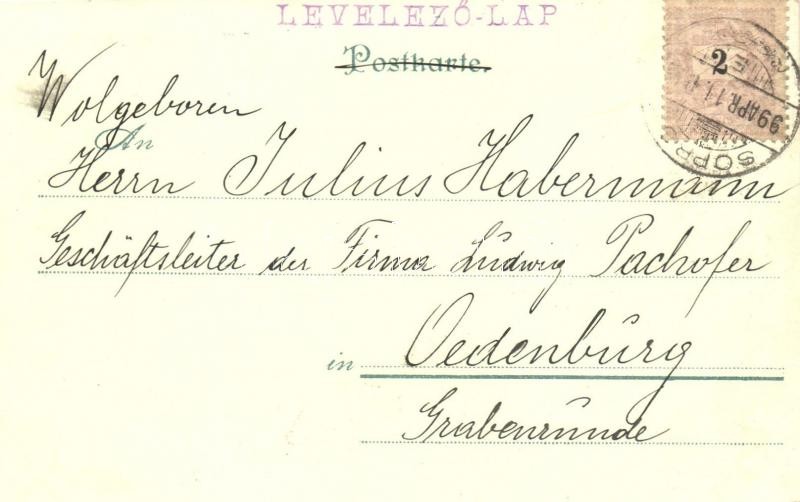 LEVELEZŐ-LAP
Postkarte.
2
99 APR. 11
SOPR
Wolgeboren
An
Herrn Julius Habermann
Geschäftsleiter der Firma Ludwig Pachofer
in Oedenburg
Grabenrunde